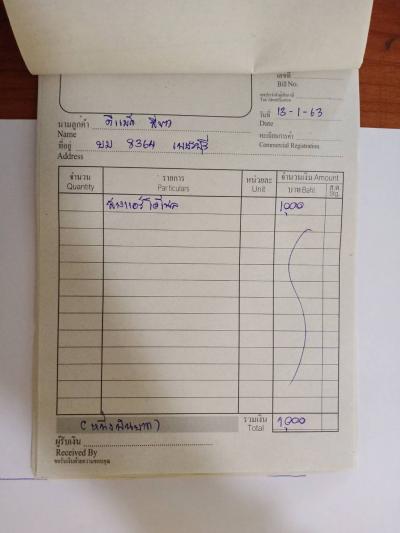 เลขที่
Bill No.
เลขประจำตัวผู้เสียภาษี
Tax Identification
วันที่ 13-1-63
Date
นามลูกค้า ดีแม็ค สีขาว
Name
ทะเบียนการค้า
Commercial Registration
ที่อยู่ บม 8364 เพชรบุรี
Address
จำนวน รายการ หน่วยละ จำนวนเงิน Amount
Quantity Particulars Unit บาท Baht ส.ต. Stg.
1,000
(หนึ่งพันบาท) รวมเงิน 1,000
Total
ผู้รับเงิน
Received By
ขอรับเงินด้วยความขอบคุณ